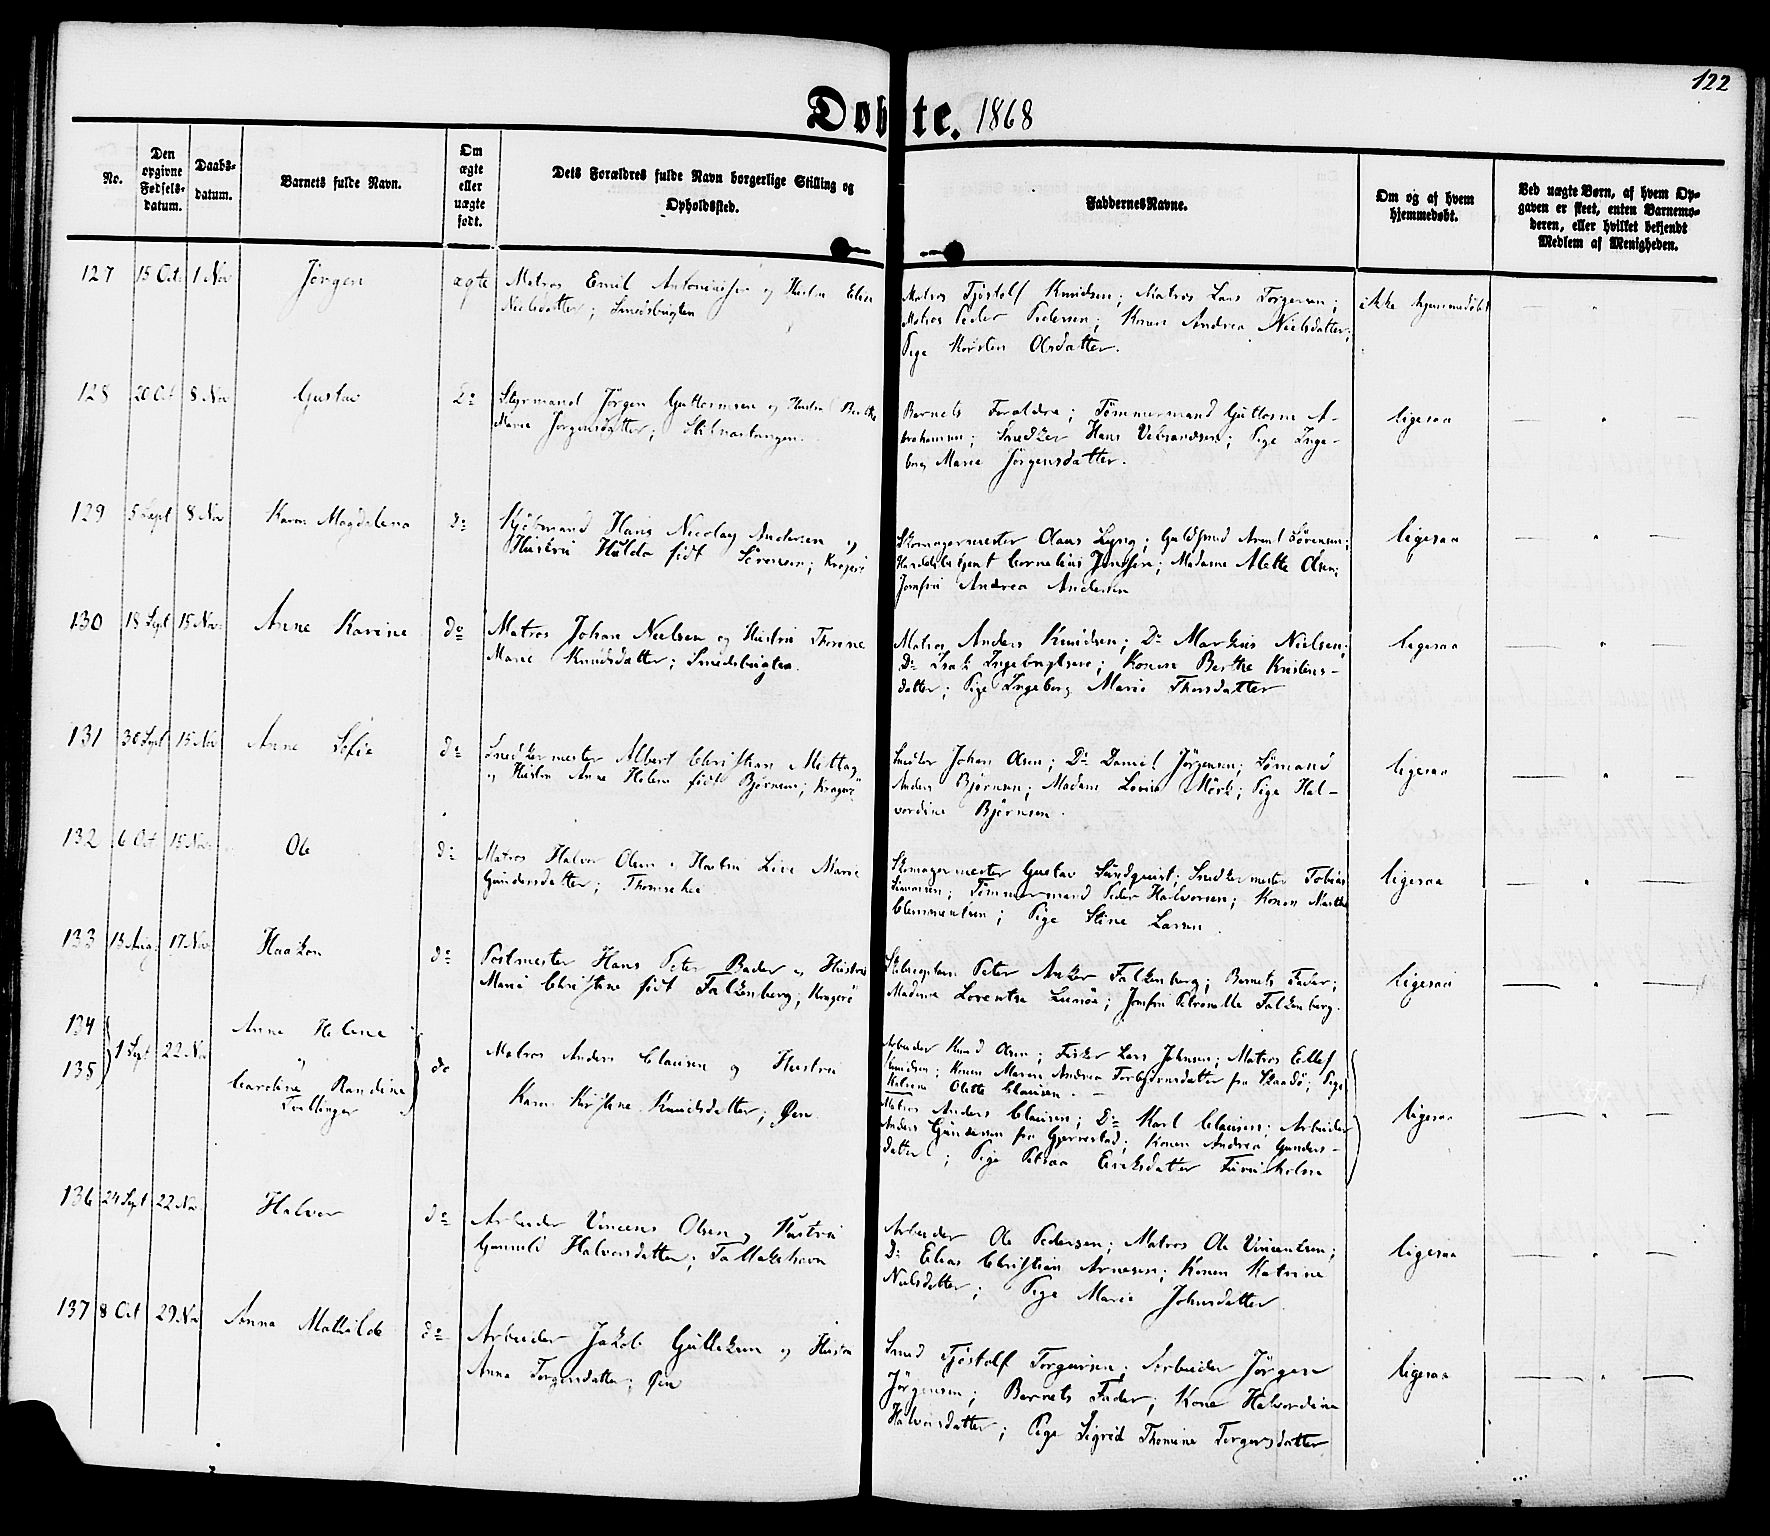 122
Døbte. 1868
No.
Den opgivne Fødsels-datum.
Daabs-datum.
Barnets fulde Navn.
Om ægte eller uægte født.
Dets Forældres fulde Navn borgerlige Stilling og Opholdssted.
Faddernes Navne.
Om og af hvem hjemmedøbt.
Ved uægte Børn, af hvem Opgaven er skeet, enten Barnemoderen, eller hvilket bekjendt Medlem af Menigheden.
127 15 Oct 1 Nov Jörgen ægte Matros Emil Antonissen og Hustru Elise
Nielsdatter; Smedsbugten
Matros Tjöstolf Knudsen; Matros Lars Torgersen;
Matros Peder Pedersen; Konen Andrea Nielsdatter;
Pige Kirsten Olsdatter.
ikke hjemmedöbt
128 20 Oct 8 Nov Gustav Do Styrmand Jörgen Guttormsen og Hustru Berthe
Marie Jörgensdatter;
Barnets Forældre; Tömmermand Guttorm A-
brahamsen; Snedker Hans; Pige Inge-
borg Marie Jörgensdatter.
ligesaa
129 5 Sept 8 Nov Karen Magdalena Do Kjöbmand Hans Nicolay Andersen og
Hustru Hulda födt Sörensen; Kragerö
Skomagermester Olaus Lyng; Guldsmed Arent Sörensen;
Handelsbetjent Cornelius Jensen; Madame Mette Olsen;
Jomfru Andrea Andersen
ligesaa
130 18 Sept 15 Nov Anne Karine do Matros Johan Nielsen og Hustru Thomine
Marie Knudsdatter; Smedsbugten.
Matros Anders Knudsen; Do Markus Nielsen;
Do Isak Ingebrigtsen; Konen Berthe Kristens-
datter; Pige Ingeborg Marie Thorsdatter
ligesaa
131 30 Sept 15 Nov Anne Sofie do Snedkermester Albert Christian Mittag
og Hustru Anne Helene födt Björnsen; Kragerö
Snedker Johan Olsen; Do Daniel Jörgensen; Sömand
Anders Björnsen; Madam Lovise Mörk; Pige Hal-
vordine Björnsen.
ligesaa
132 6 Oct 15 Nov Ole do Matros Halvor Olsen og Hustru Live Marie
Gundersdatter;
Skomagermester Gustav Sundquist; Snedkermester Tobias
Simonsen; Tömmermand Peder Halvorsen; Konen Marthe
Clemmentsen; Pige Stine Larsen.
ligesaa
133 13 Aug 17 Nov Haakon do Postmester Hans Peter Bader og Hustru
Marie Christine födt Falkenberg; Kragerö
Peter Anker Falkenberg; Barnets Fader;
Madame Lorentse; Jomfru Petronelle Falkenberg.
ligesaa
134 Anne Helene
1 Sept 22 Nov og do Matros Anders Clausen og Hustru
135 Caroline Randine
Tvillinger
Karen Kirstine Knudsdatter; Öen
Arbeider Knud Olsen; Fisker Lars Johnsen; Matros Ellef
Knudsen; Konen Maren Andrea Torbjörnsdatter fra Skaadö; Pige
Helene Olette Clausen. –
Matros Anders Clausen; Do Karl Clausen; Arbeider
Anders Gundersen fra Gjerrestad; Konen Andrea Gunders-
datter; Pige Petraa Eriksdatter Furuholmen
ligesaa
136 24 Sept 22 Nov Halvor do Arbeider Vincens Olsen og Hustru
Gunnild Halvorsdatter; Tallakshavn
Arbeider Ole Pedersen; Matros Ole Vincentsen;
Do Elias Christian Arnesen; Konen Katrine
Nielsdatter; Pige Marie Johnsdatter.
ligesaa
137 8 Oct 29 Nov Anna Mathilde do Arbeider Jakob Gulliksen og Hustru
Anna Torgersdatter; Öen
Smed Tjöstolf Torgersen; Arbeider Jörgen
Jörgensen; Barnets Fader; Kone Halvordine
Halvorsdatter; Pige Sigrid Thomine Torgersdatter
ligesaa